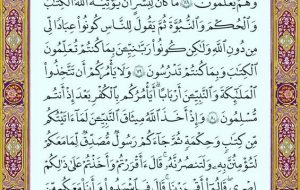 وَهُمْ يَعْلَمُونَ ٧٨ مَا كَانَ لِبَشَرٍ أَن يُؤْتِيَهُ ٱللَّهُ ٱلْكِتَٰبَ
وَٱلْحُكْمَ وَٱلنُّبُوَّةَ ثُمَّ يَقُولَ لِلنَّاسِ كُونُوا۟ عِبَادًا لِّى
مِن دُونِ ٱللَّهِ وَلَٰكِن كُونُوا۟ رَبَّٰنِيِّـۧنَ بِمَا كُنتُمْ تُعَلِّمُونَ
ٱلْكِتَٰبَ وَبِمَا كُنتُمْ تَدْرُسُونَ ٧٩ وَلَا يَأْمُرَكُمْ أَن تَتَّخِذُوا۟
ٱلْمَلَٰٓئِكَةَ وَٱلنَّبِيِّـۧنَ أَرْبَابًا أَيَأْمُرُكُم بِٱلْكُفْرِ بَعْدَ إِذْ أَنتُم
مُّسْلِمُونَ ٨٠ وَإِذْ أَخَذَ ٱللَّهُ مِيثَٰقَ ٱلنَّبِيِّـۧنَ لَمَآ ءَاتَيْتُكُم
مِّن كِتَٰبٍ وَحِكْمَةٍ ثُمَّ جَآءَكُمْ رَسُولٌ مُّصَدِّقٌ لِّمَا مَعَكُمْ
لَتُؤْمِنُنَّ بِهِۦ وَلَتَنصُرُنَّهُۥ قَالَ ءَأَقْرَرْتُمْ وَأَخَذْتُمْ عَلَىٰ ذَٰلِكُمْ
إِصْرِى قَالُوٓا۟ أَقْرَرْنَا قَالَ فَٱشْهَدُوا۟ وَأَنَا۠ مَعَكُم مِّنَ